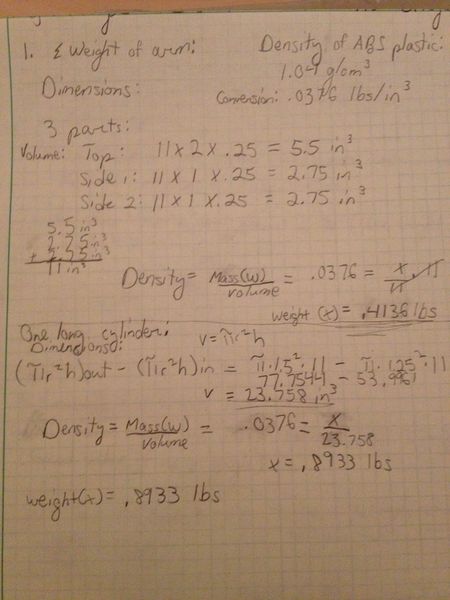 1. Σ Weight of arm:
Density of ABS plastic:
1.04 g/cm³
Dimensions:
Conversion: .0376 lbs/in³
3 parts:
Volume: Top: 11 x 2 x .25 = 5.5 in³
Side 1: 11 x 1 x .25 = 2.75 in³
Side 2: 11 x 1 x .25 = 2.75 in³
5.5 in³
2.75 in³
+ 2.75 in³
11 in³
Density = Mass(w)/volume = .0376 = x/11 . 11
weight (x) = .4136 lbs
One long cylinder:
Dimensions:
v = πr²h
(πr²h)out - (πr²h)in = π·1.5²·11 - π·1.25²·11
77.7544 - 53.9961
v = 23.758 in³
Density = Mass(w)/volume = .0376 = x/23.758
x = .8933 lbs
weight(x) = .8933 lbs